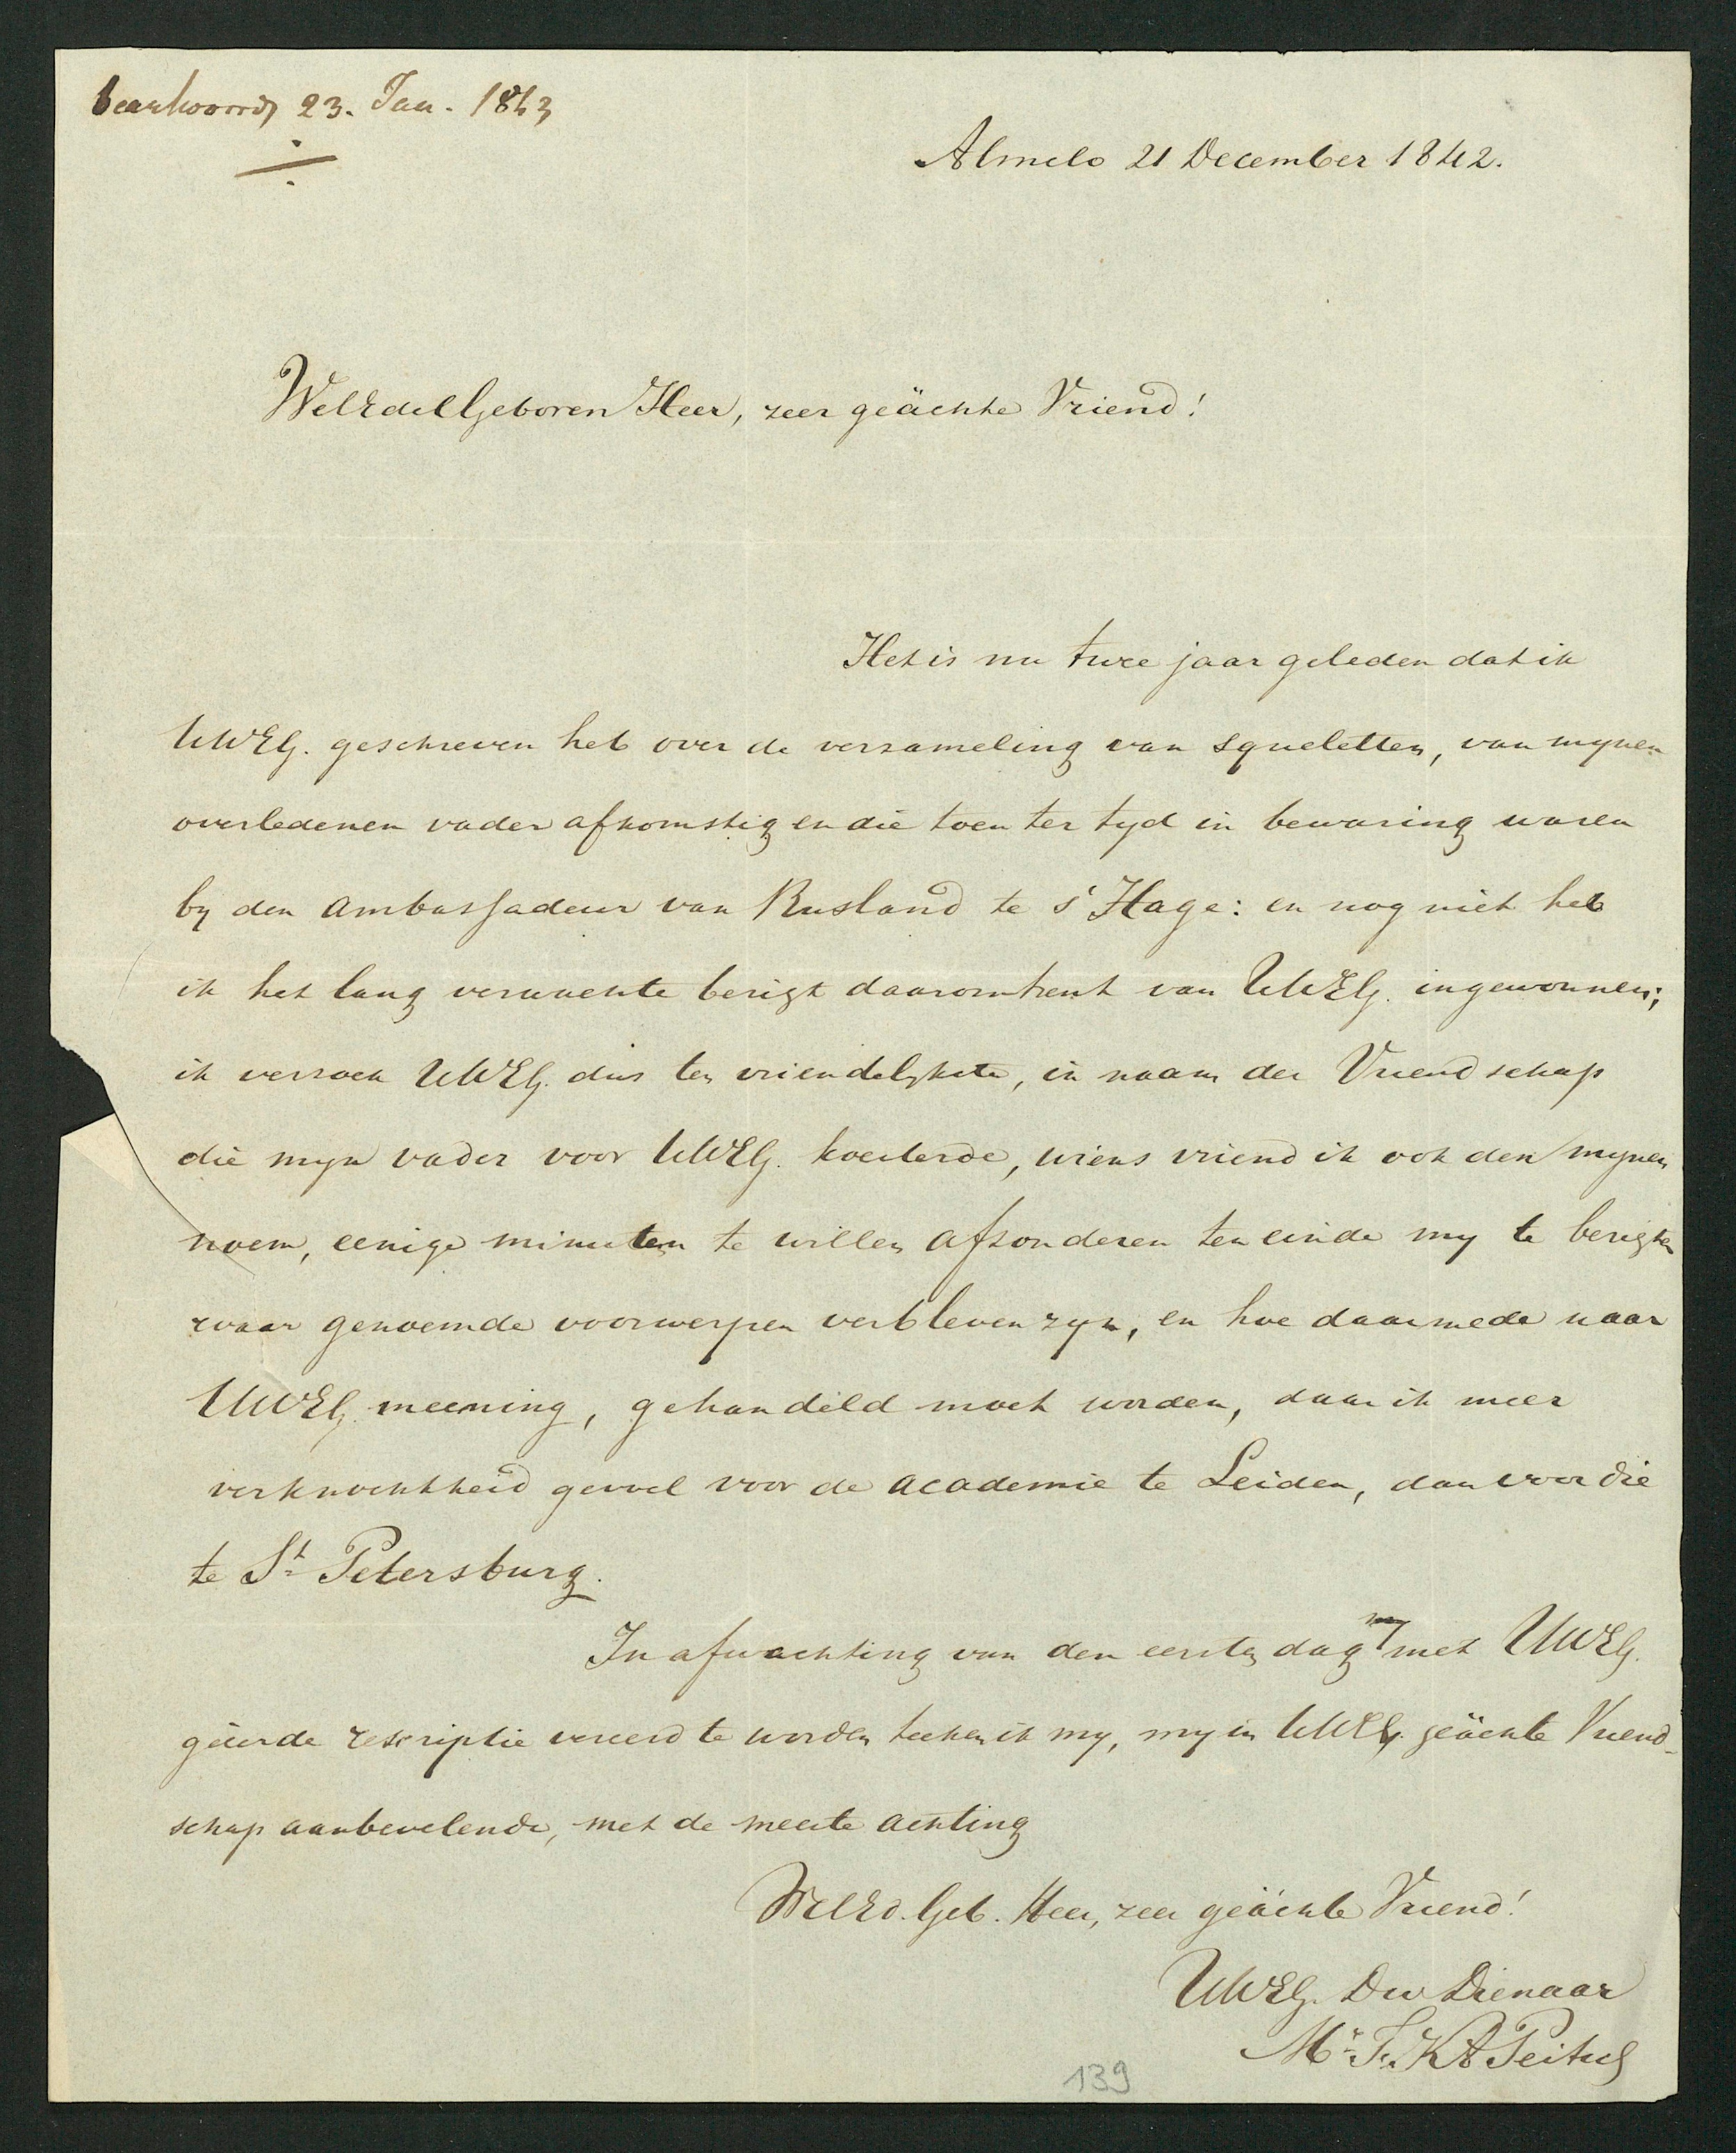 beantwoord 23. Jan. 1843
Almelo 21 December 1842.
WelEdelGeboren Heer, zeer geächte Vriend!
Het is nu twee jaar geleden dat ik
UWEG. geschreven heb over de verzameling van squeletten, van mynen
overledenen vader afkomstig en die toen ter tyd in bewaring waren
by den Ambassadeur van Rusland te s'Hage: en nog niet heb
ik het lang verwachte berigt daaromtrent van UWEG. ingewonnen;
ik verzoek UWEG. dus ten vriendelykste, in naam der Vriendschap
die myn vader voor UWEG. koesterde, wiens vriend ik ook den mynen
noem, eenige minuten te willen afzonderen ten einde my te berigten
waar genoemde voorwerpen verbleven zyn, en hoe daarmede naar
UWEG. meening, gehandeld moet worden, daar ik meer
verknochtheid gevoel voor de academie te Leiden, dan voor die
te St Petersburg.
In afwachting van den eersten dag met UWEG.
geëerde rescriptie vereerd te worden teeken ik my, my in UWEG. geächte Vriend-
schap aanbevelende, met de meeste achting
WelEd. Geb. Heer, zeer geächte Vriend!
UWEG. Dw Dienaar
Mr. F. K A Peitsch
139